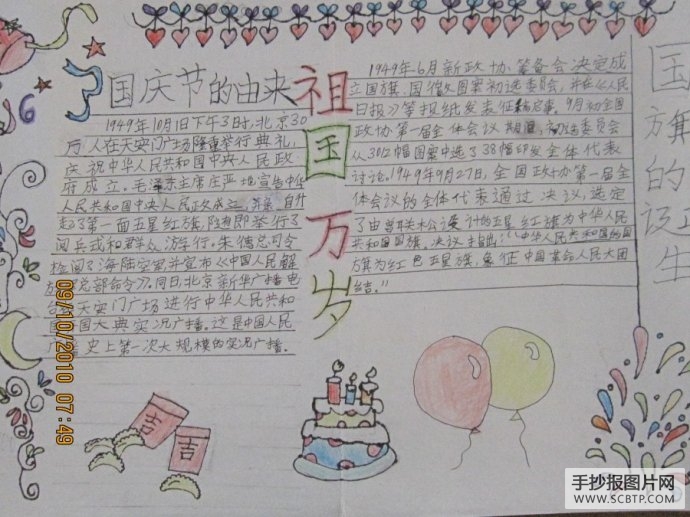 国庆节的由来
1949年10月1日下午3时,北京30
万人在天安门广场隆重举行典礼,
庆祝中华人民共和国中央人民政
府成立。毛泽东主席庄严地宣告中华
人民共和国中央人民政府成立,并亲自升
起了第一面五星红旗,随即举行了
阅兵式和群众游行,朱德总司令
检阅了海陆空军,并宣布《中国人民解
放总部命令》,同日北京新华广播电
天安门广场进行中华人民共和
国大典实况广播。这是中国人民
广史上第一次大规模的实况广播。
祖国万岁
1949年6月新政协筹备会决定成
立国旗、国徽图案初选委员会,并在《人民
日报》等报纸发表征稿启事。9月初全国
政协第一届全体会议期间,初选委员会
从3012幅图案中选了38幅印发全体代表
讨论。1949年9月27日,全国政协第一届全
体会议的全体代表通过决议,选定
了由曾联松设计的五星红旗为中华人民
共和国国旗。决议指出:"中华人民共和国的国
旗为红色五星旗,象征中国革命人民大团
结。"
国旗的诞生
吉
吉
09/10/2010 07:49
手抄报图片网
WWW.SCBTP.COM